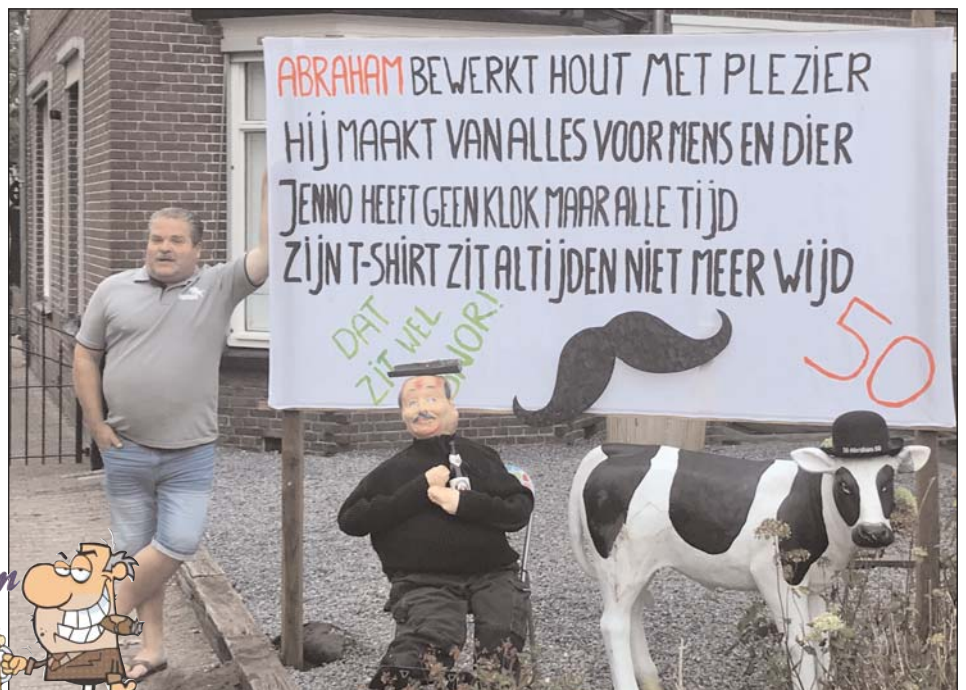 ABRAHAM BEWERKT HOUT MET PLEZIER
HIJ MAAKT VAN ALLES VOOR MENS EN DIER
JENNO HEEFT GEEN KLOK MAAR ALLE TIJD
ZIJN T-SHIRT ZIT ALTIJD EN NIET MEER WIJD
DAT
ZIT WEL
SNOR!
50